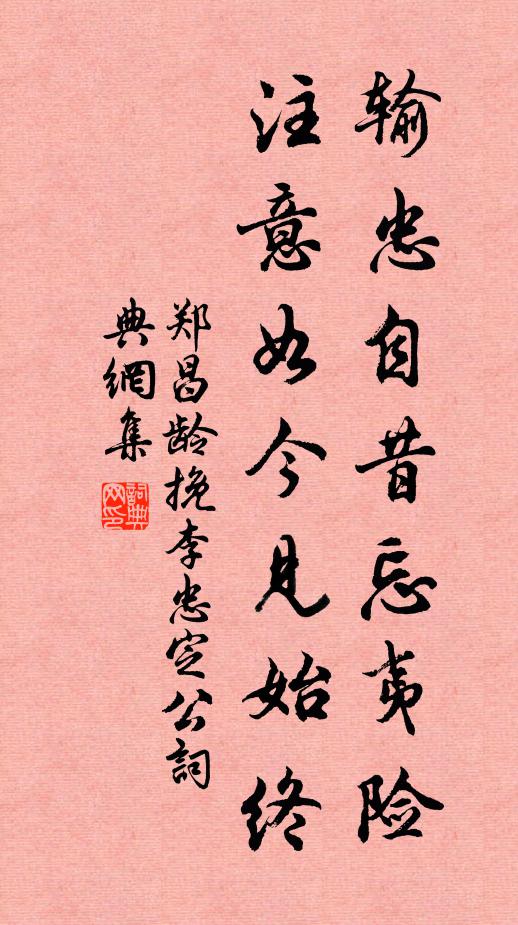 输忠自昔忘夷险
注意如今见始终
郑昌龄挽李忠定公詞
典網集
詞典网印